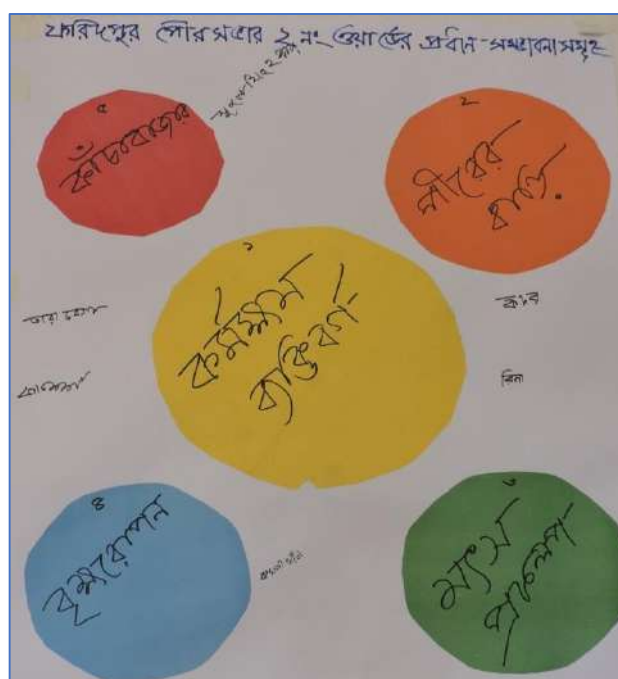 ফরিদপুর পৌরসভার ২ নং ওয়ার্ডের প্রধান সম্ভাবনাসমূহ
৫
কাঁচাবাজার
২
পীরের
বাড়ি.
১
কর্মক্ষম
ব্যক্তিবর্গ
রিনা
৪
বৃক্ষরোপন
৩
মৎস
প্রকল্প